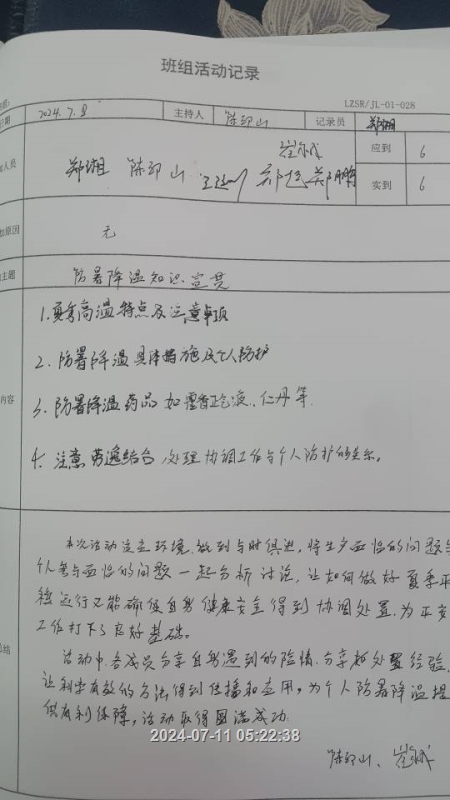 班组活动记录
LZSR/JL-01-028
日期 2024.7.8 主持人 陈卯山 记录员 郑湘
人员 郑湘 陈卯山 应到 6
实到 6
原因 无
主题 防暑降温知识宣贯
1.夏季高温特点及注意事项
2.防暑降温具体措施及个人防护
内容
3.防暑降温药品如藿香正气液、仁丹等
4.注意劳逸结合,处理协调工作与个人防护的关系。
本次活动 环境,做到与时俱进,将生产面临的问题与
个人参与面临的问题一起分析讨论,让如何做好夏季平
稳运行又能确保自身健康安全得到协调处置,为平安
工作打下了良好基础。
总结
活动中,各成员分享自身遇到的险情,分享 处置经验,
让科学有效的方法得到传播和应用,为个人防暑降温提
供有利保障,活动取得圆满成功
2024-07-11 05:22:38
陈卯山、